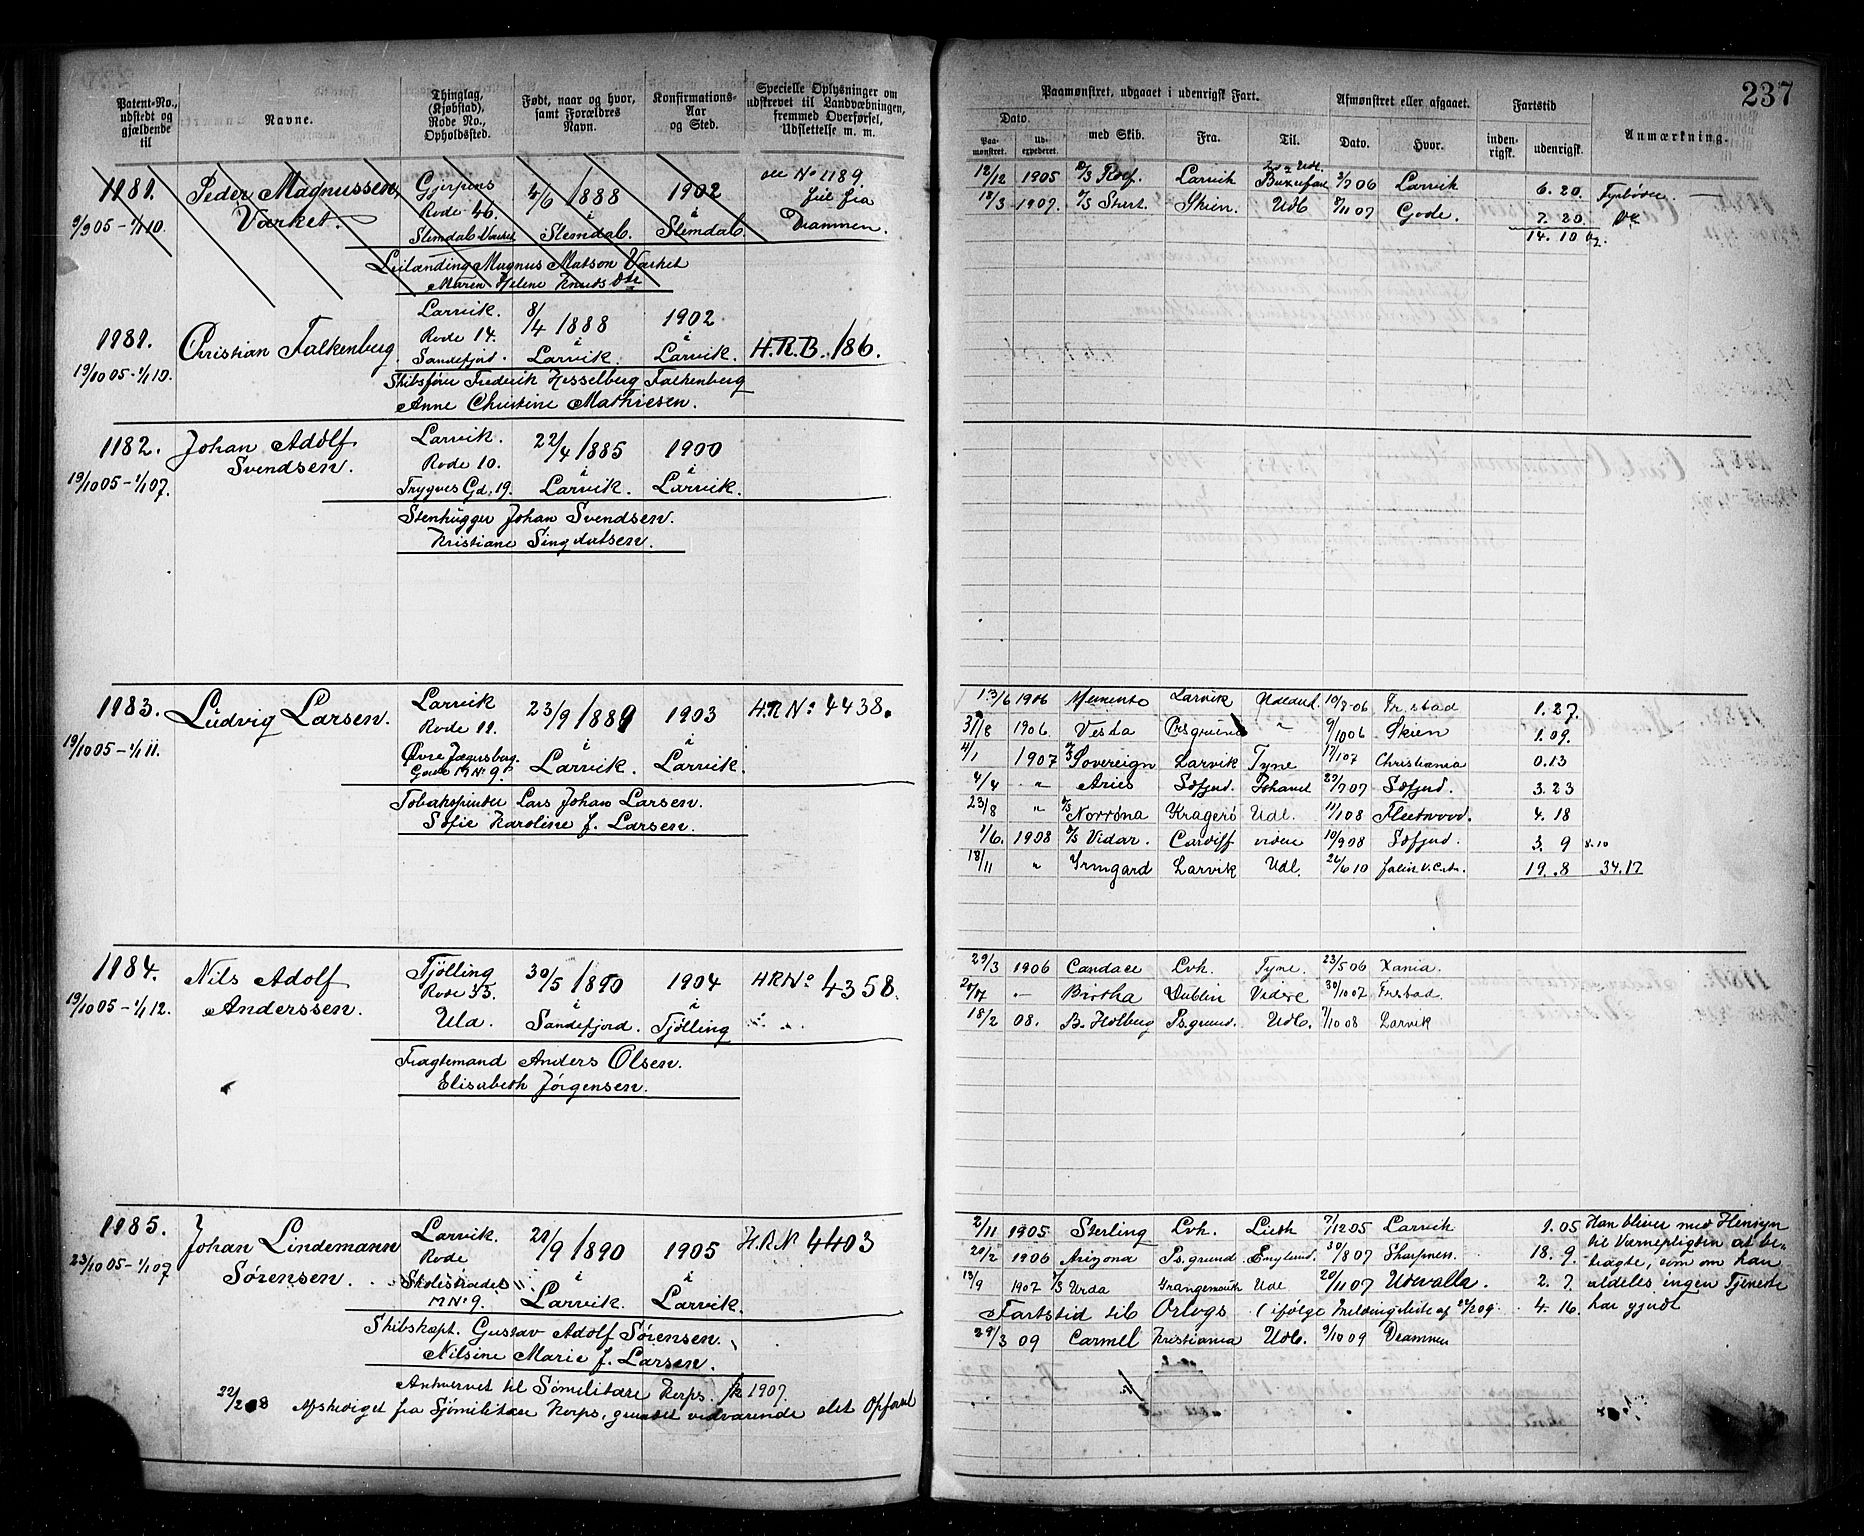 237
Patent-No., udstedt og gjældende til
Navne.
Thinglag, (Kjøbstad). Rode No., Opholdssted.
Født, naar og hvor, samt Forældres Navn.
Konfirmations-Aar og Sted.
Specielle Oplysninger om udskrevet til Landværbningen, fremmed Overførsel, Udslettelse m. m.
Paamønstret, udgaaet i udenrigsk Fart.
Afmønstret eller afgaaet.
Fartstid
Anmærkning.
Dato.
Paa-mønstret.
Ud-expederet.
med Skib.
Fra.
Til.
Dato.
Hvor.
inden-rigsk.
udenrigsk.
1181. Peder Magnussen, Gjerpens 4/6 1888 1902 see No 1189
Værket. Rode 46. i i
9/9 05 - 1/1 10. Slemdal Værket Slemdal. Slemdal. Drammen.
Leilænding Magnus Matson Værket
Maren Helene Knutsdtr
12/12 1905 Larvik 2/7 06 Larvik 6. 20. Fyrbøder
12/3 1907. Skien. Udl. 8/11 07 Gode. 7. 20.
14. 10
1181. Christian Falkenberg. Larvik. 8/4 1888 1902 H.R.B. 186.
Rode 14. i i
19/10 05 - 1/1 10. Sandefjord. Larvik. Larvik.
Skibsfører Frederik Hesselberg Falkenberg
Anne Christine Mathiesen.
1182. Johan Adolf Larvik. 22/4 1885 1900
Svendsen. Rode 10. i i
19/10 05 - 1/1 07. Trygves Gd. 19. Larvik. Larvik.
Stenhugger Johan Svendsen.
Kristiane Singdalsen.
1183. Ludvig Larsen. Larvik 23/9 1889 1903 H.R No 4438.
Rode 12. i i
19/10 05 - 1/1 11. Øvre Jægersborg. Larvik. Larvik.
Gade M No 9.
Tobakspinder Lars Johan Larsen.
Sofie Karoline f. Larsen.
13/6 1906 Memento Larvik 10/7 06 Fr.stad 1. 27.
31/8 1906. Vesta Prsgrund " 9/10 06 Skien 1. 09.
4/1 1907 Sovereign Larvik Tyne 17/1 07 Christiania 0. 13
4/4 " Aries Ssfjord. 27/7 07 Ssfjord. 3. 23
23/8 " Norrøna Kragerø Udl. 11/1 08 Fleetwood. 4. 18
1/6. 1908 Vidar. Cardiff videre 10/9 08 Ssfjord. 3. 9 8.10
18/11 " Irmgard Larvik Udl. 26/6 10 19. 8 34.17
1184. Nils Adolf Tjølling 30/5 1890 1904 H.R No 4358.
Anderssen. Rode 33. i i
19/10 05 - 1/1 12. Ula. Sandefjord. Tjølling
Fragtemand Anders Olsen.
Elisabeth Jørgensen.
29/3 1906 Candace Lvk. Tyne. 23/5 06 Xania.
- Birtha Dublin Videre 30/10 07 Frstad.
18/2 08. B. Holberg Ps.grund. Udl. 7/10 08 Larvik
1185. Johan Lindemann Larvik. 1890 1905 H.R.N 4403
Sørensen. Rode i i
23/10 05 - 1/1 07 Skolestrædet Larvik. Larvik.
M No 9.
Skibskapt. Gustav Adolf Sørensen.
Nilsine Marie f. Larsen.
Anhvervet til Sømilitære Korps. 1907.
22/2 08 Afskediget fra Sjømilitære Korps, grundet vedvarende slet Opførsel
2/11 1905 Sterling Lvk. Lieth 7/12 05 Larvik 1. 05 Han bliver med Hensyn
20/2 1906 Arizona Ps.grund England. 30/8 07 Sharpness. 18. 9. til Værnepligten at be-
13/9 1907 Urda Grangemouth Udl 20/11 07 Udevalla. 2. 7. tragte, som om han
aldeles ingen Tjeneste
Fartstid til Orlogs (ifølge Meldingsliste af 4. 16. har gjordt
29/3 09 Carmel Kristiania Udl. 9/10 09 Drammen